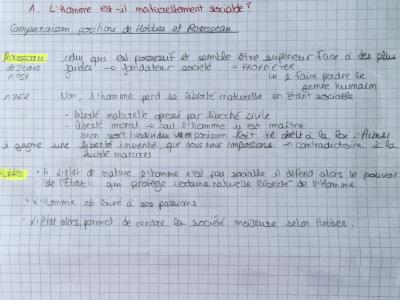 1. L'Homme est-il naturellement sociable?
Comparaison positions de Hobbes et Rousseau
Rousseau celui qui est possessif et semble être supérieur face à des plus
discours guides → fondateur société = PROPRIETER
↳ faire perdre le
genre humain
1762 Non, l'homme perd sa liberté naturelle en étant sociable
- liberté naturelle opressé par liberté civile
- liberté moral → seul l'homme y est maître
bien sort l'individu soit il obéit à la loi. Ainsi
il gagne une liberté que nous nous imposons → contradictoire à la
liberté naturel
Hobbes • À l'état de nature l'homme n'est pas sociable il défend alors le pouvoir
de l'État qui protège certaine naturelle liberté de l'Homme
• L'Homme est livré à ses passions
• L'État alors permet de rendre la société meilleure selon Hobbes.